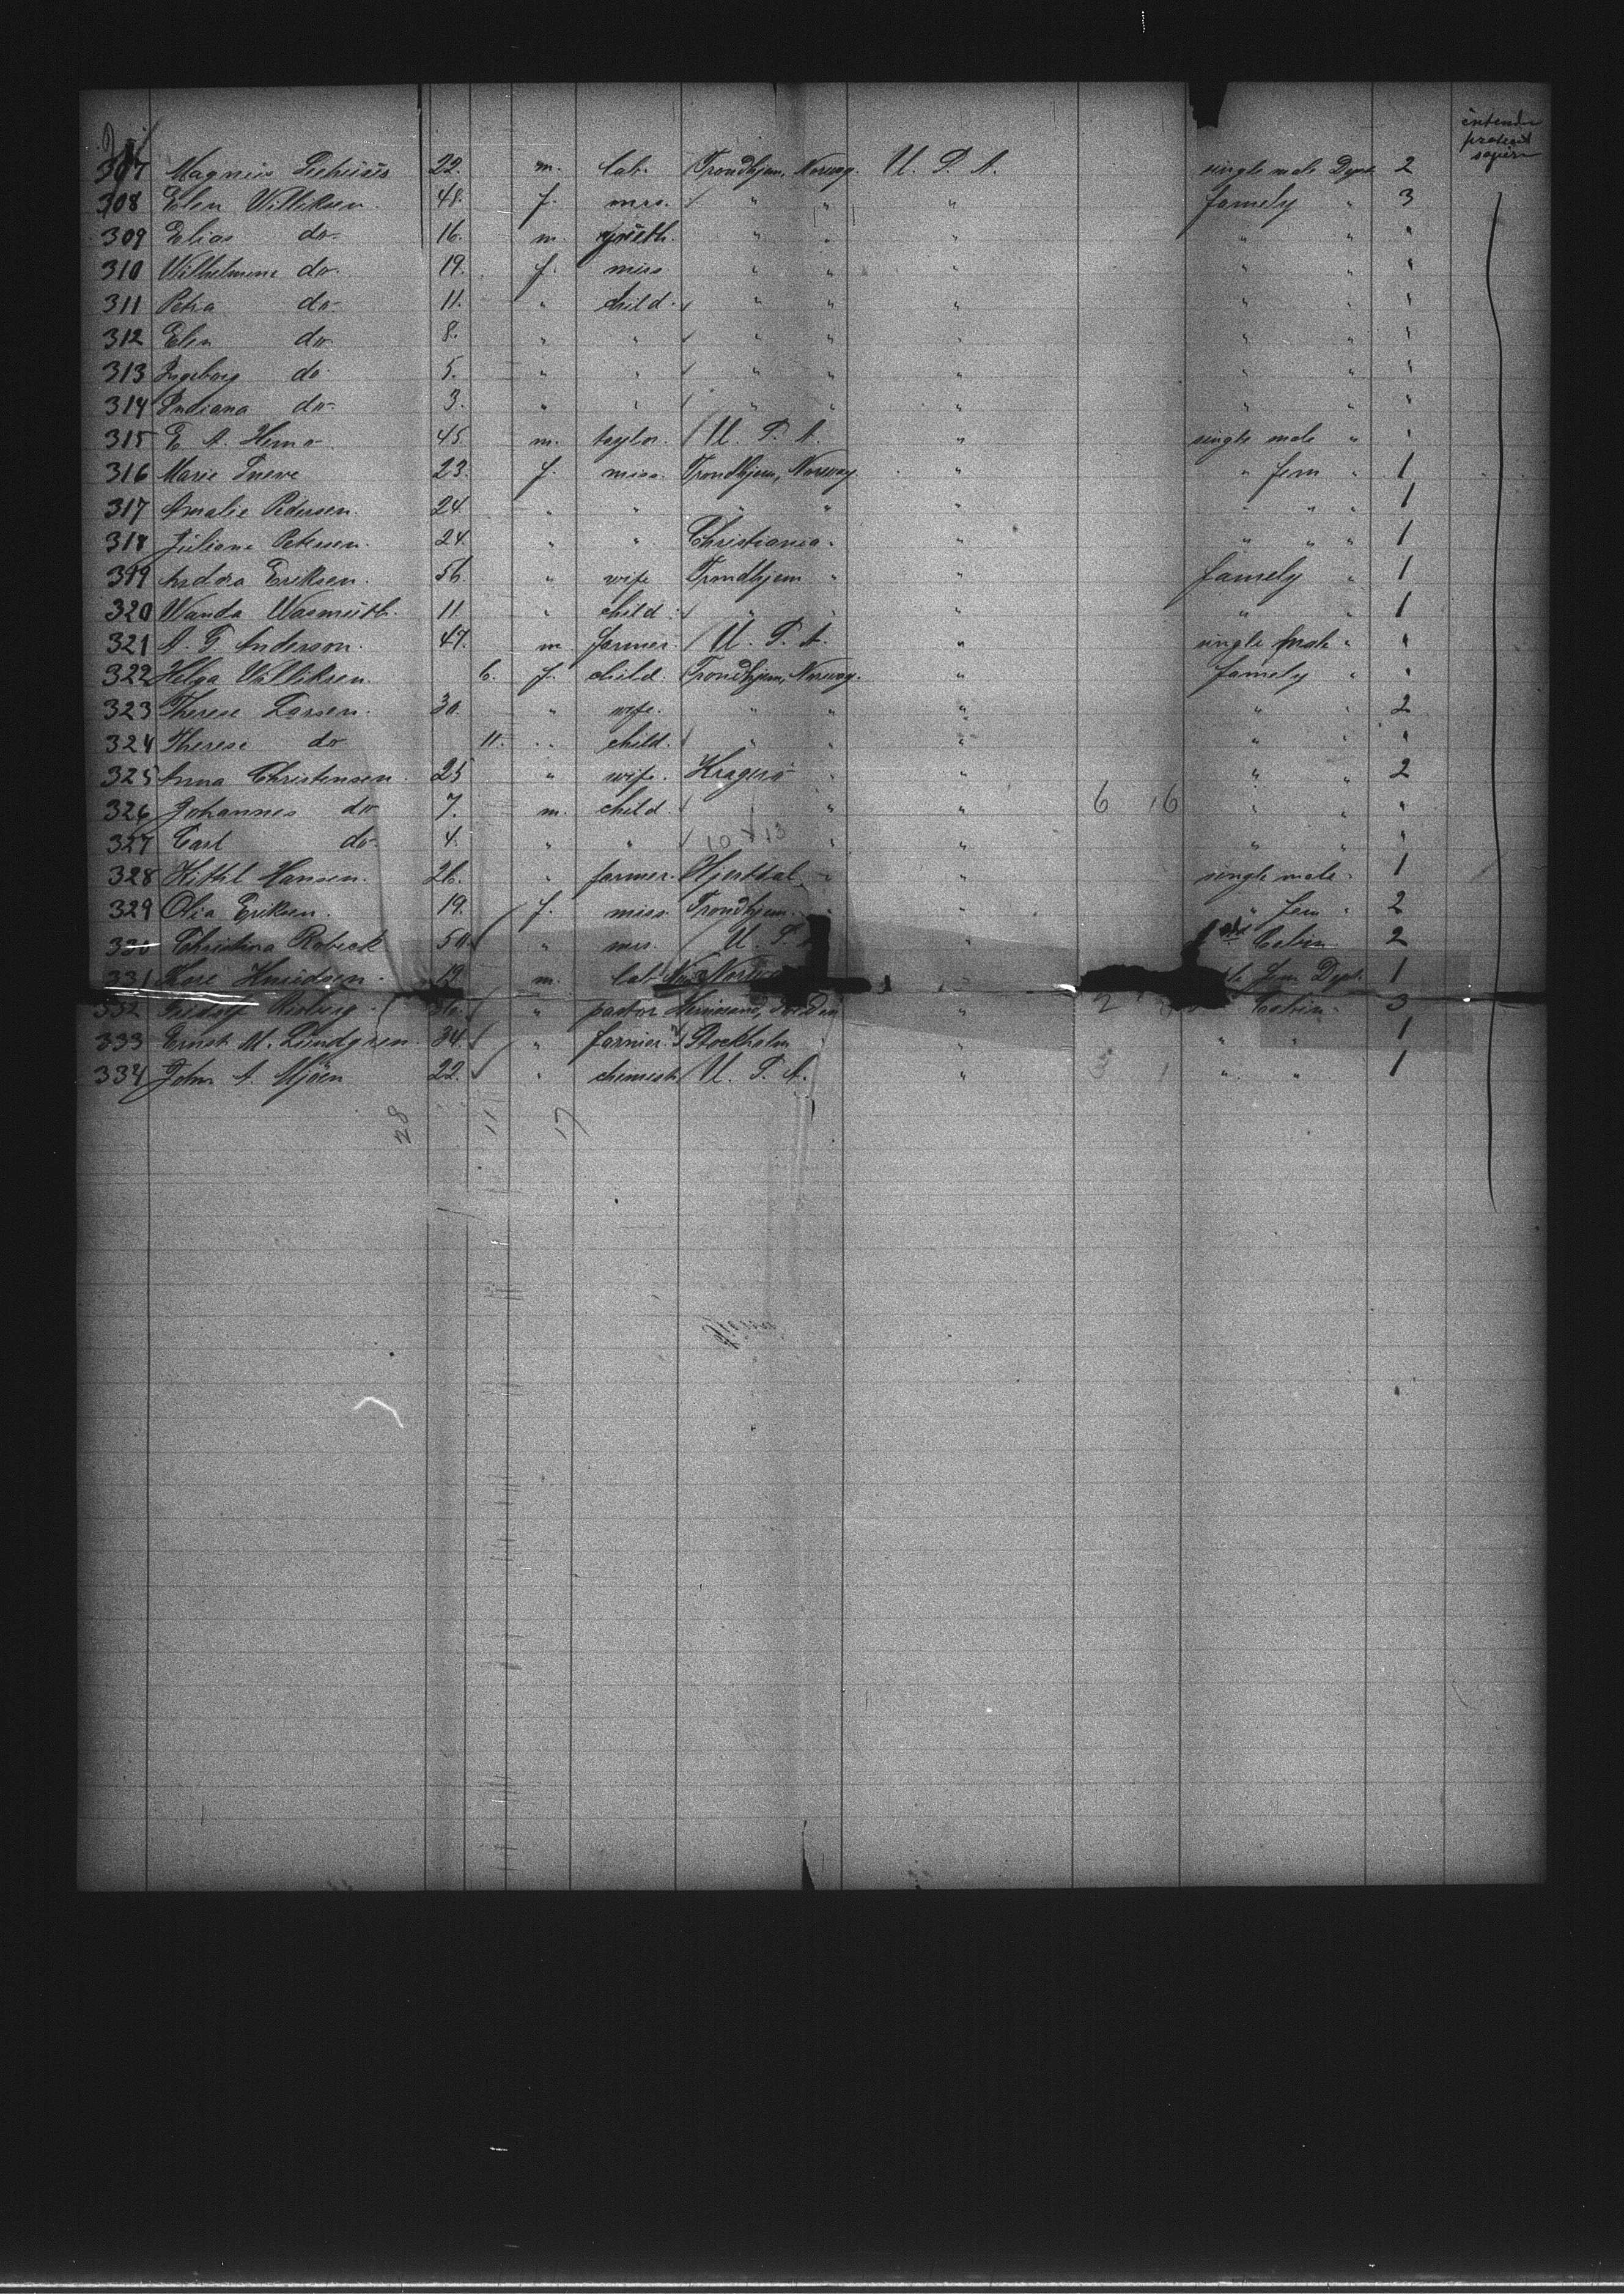 intend
protract
sojourn
307 Magnus 22. m. lab. Trondhjem, Norway. U. S. A. single male Dept. 2
308 Elen Williksen. 48. f. mrs. " " " famely " 3
309 Elias do- 16. m. youth. " " " " " "
310 Wilhelmine do- 19. f. miss " " " " " "
311 Petra do- 11. " child. " " " " " "
312 Elen do- 8. " " " " " " " "
313 Ingeborg do- 5. " " " " " " " "
314 Indiana do- 3. " " " " " " " "
315 E. A. Hemo 45. m. taylor. U. S. A. " single male " "
316 Marie 23. f. miss. Trondhjem, Norway. " " fem " 1
317 Amalie Pedersen. 24. " " " " " " " " 1
318 Juliane Petersen. 24. " " Christiania " " " " " 1
319 Andrea Eriksen. 56. " wife Trondhjem " " famely " 1
320 Wanda Wasmuth. 11. " child. " " " " " 1
321 A. G. Anderson. 47. m. farmer. U. S. A. " single male " "
322 Helga Williksen. 6. f. child. Trondhjem, Norway. " famely " "
323 Therese Larsen. 30. " wife. " " " " " 2
324 Therese do 11. " child. " " " " " "
325 Anna Christensen. 25 " wife. Kragerö " " " " 2
326 Johannes do 7. m. child. " " 6 16 " " "
327 Carl do- 4. " " 10 x 13 " " " " "
328 Kittil Hansen. 26. " farmer. Hjertdal " " single male " 1
329 Olia Eriksen. 19. f. miss. Trondhjem " " " fem " 2
330 Christina Robeck 50. " mrs. U. S. " Cabin 2
331 Knudsen. 19 m. lab. Norway Dept. 1
332 36. " pastor Sweden " 2 Cabin. 3
333 Ernst M. Lundgren 34. " farmer. Stockholm " " " " 1
334 John A. Mjöen 22. " chemist U. S. A. " 3 1 " " 1
28 11 17